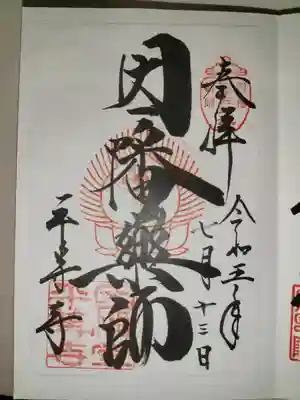 奉拝
令和三年
七月十三日
因幡薬師
平等寺